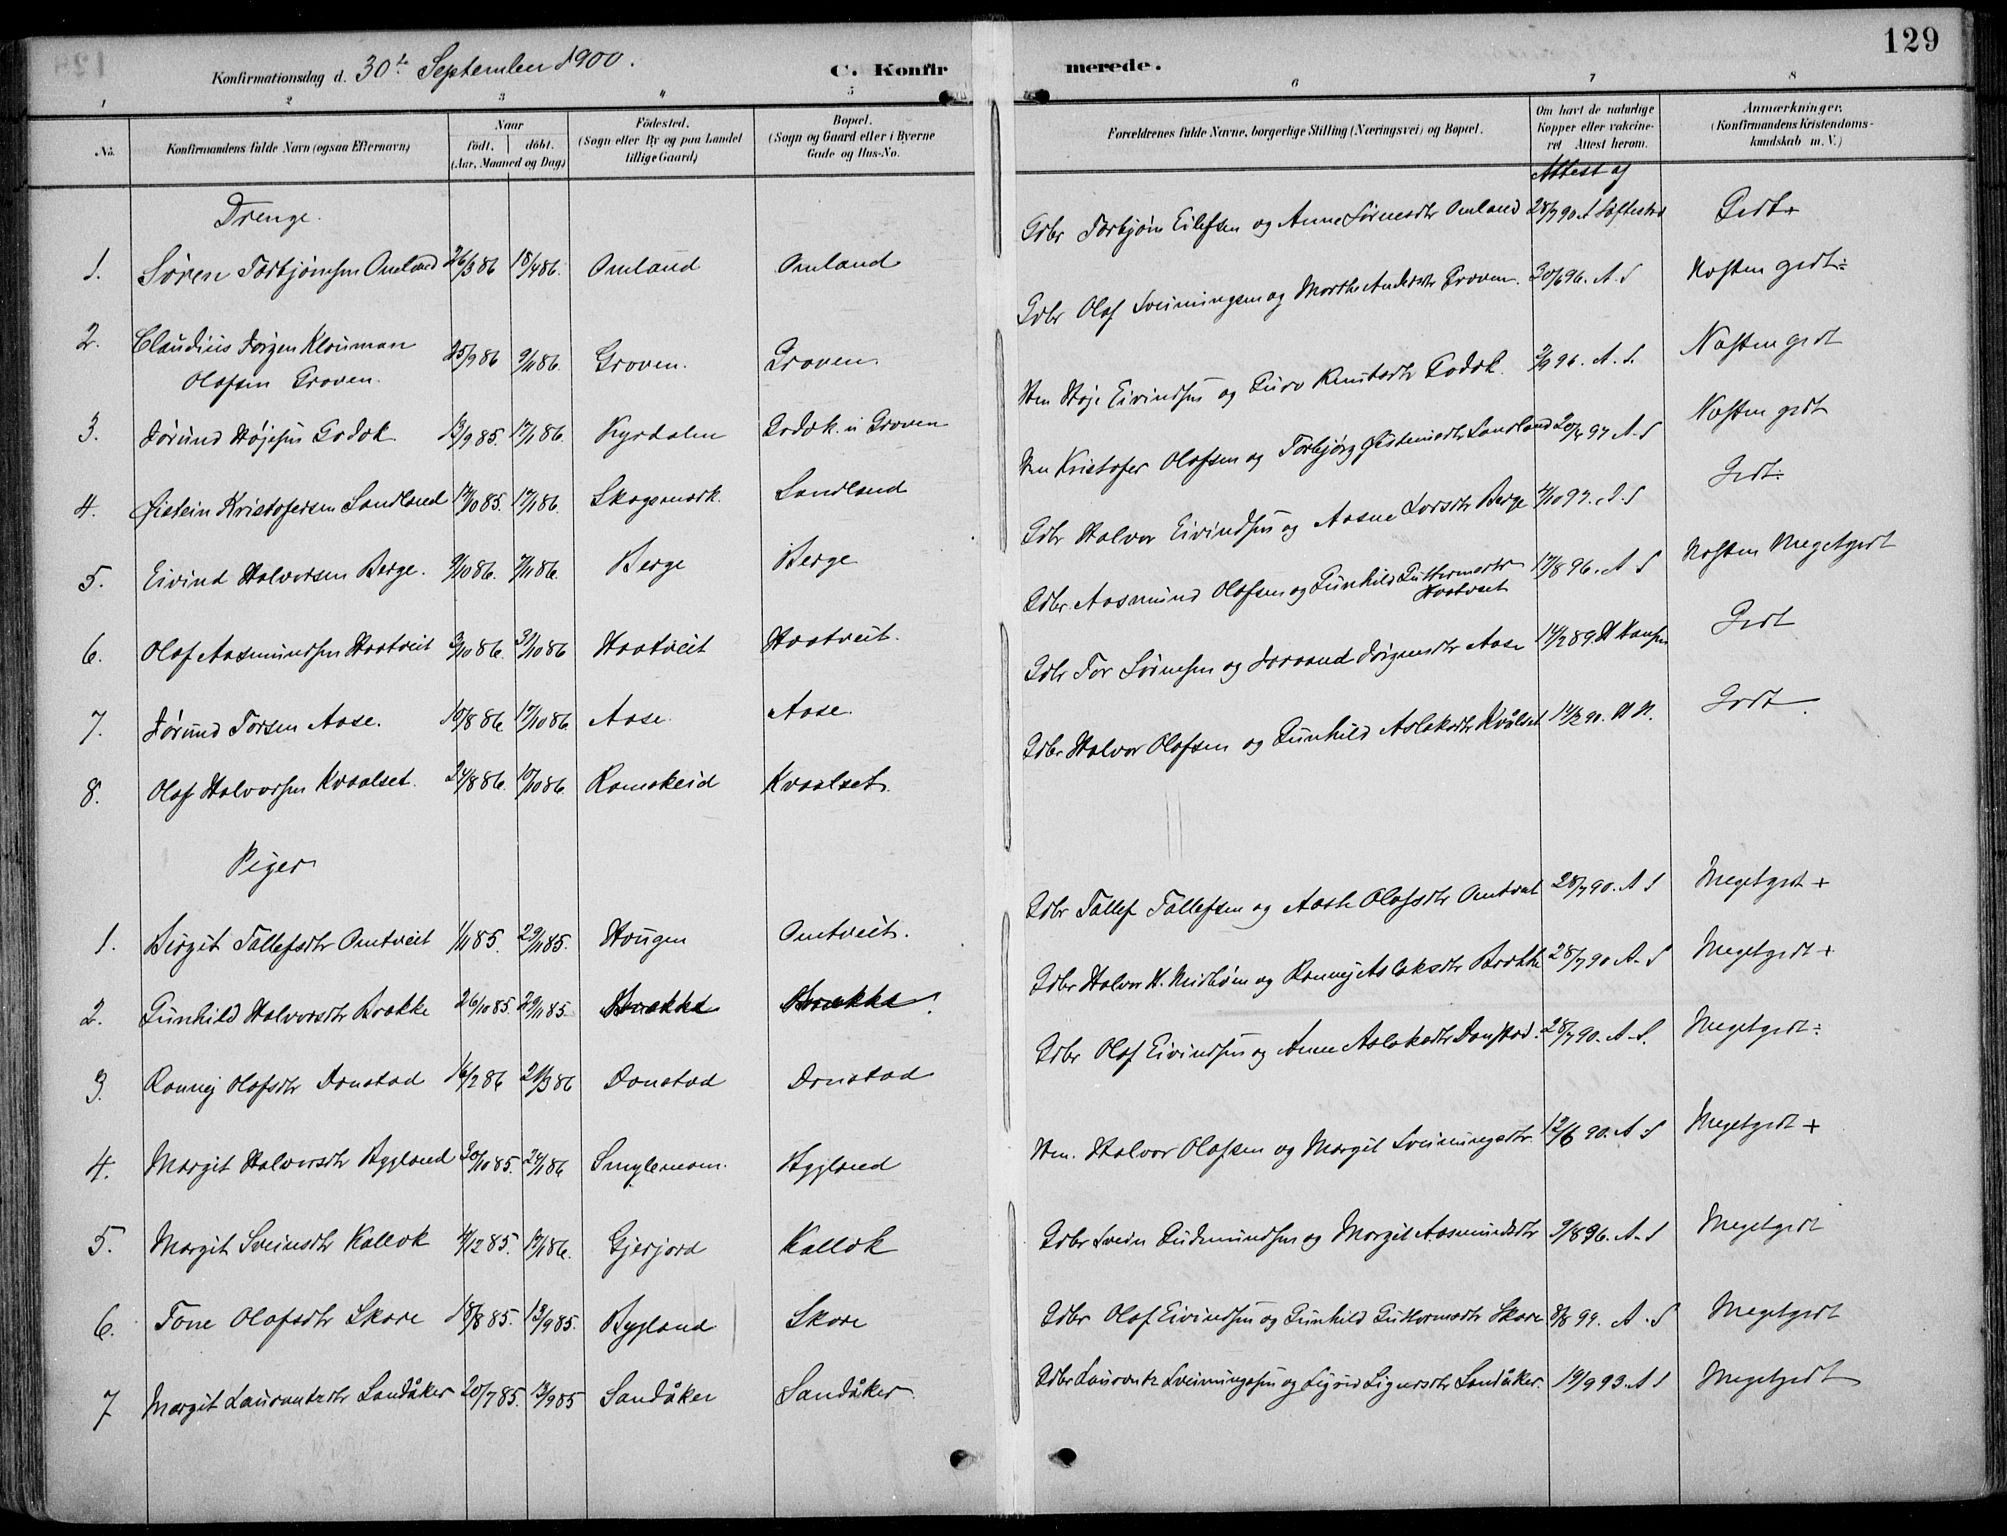 129
Konfirmationsdag d. 30te September 1900.
C. Konfirmerede.
1 2 3 4 5 6 7 8
No.
Konfirmandens fulde Navn (ogsaa Efternavn)
Naar
født. døbt.
(Aar, Maaned og Dag)
Fødested.
(Sogn eller By og paa Landet
tillige Gaard)
Bopæl.
(Sogn og Gaard eller i Byerne
Gade og Hus-No.
Forældrenes fulde Navne, borgerlige Stilling (Næringsvei) og Bopæl.
Om havt de naturlige
Kopper eller vakcine-
ret Attest herom.
Anmærkninger.
(Konfirmandens Kristendoms-
kundskab m. V.)
Attest af
Drenge.
1. Søren Torbjørnsen Omland 26/3 86 18/4 86. Omland Omland Gdbr Torbjørn Eilefsen og Anne Sørensdtr Omland 28/7 90 A Løftestad Godt +
2. Claudius Jørgen Klouman
Olafsen Groven. 25/9 86 9/11 86. Groven. Groven. Gdbr Olaf Sveinungsen og Marthe Andersdtr Groven. 30/6 96. A. S Næsten godt ÷
3. Jørund Højesen Godøk 13/9 85. 17/1 86. Kyrdalen Godøk u Groven Hm Høje Eivindsen og Guro Knutsdtr Godøk. 2/9 96. A. S. Næsten godt
4. Øistein Kristofersen Sandland 17/10 85. 17/1 86. Skogsmark Sandland Hm Kristofer Olafsen og Torbjørg Øisteinsdtr Sandland 20/5 97 A. S Næsten godt
5. Eivind Halvorsen Berge. 9/10 86. 7/11 86. Berge Berge Gdbr Halvor Eivindsen og Aasne Larsdtr Berge 4/10 97. A. S Godt ÷
6. Olaf Aasmundsen Haatveit 3/10 86. 31/10 86 Haatveit Haatveit. Gdbr Aasmund Olafsen og Gunhild Guttormsdtr
Haatveit 17/8 96. A S Næsten Meget godt
7. Jørund Torsen Aase. 10/8 86 17/10 86. Aase. Aase. Gdbr Tor Sørensen og Joraand Jørgensdtr Aase 14/2 89 H Hansen Godt
8. Olaf Halvorsen Kvaalset. 24/8 86. 10/10 86. Ramskeid Kvaalset. Gdbr Halvor Olafsen og Gunhild Aslaksdtr Kvålset 14/3 90. H H. Godt
Piger
1. Birgit Tallefsdtr Omtveit 1/11 85. 29/11 85. Haugen Omtveit. Gdbr Tallef Tallefsen og Aaste Olafsdtr Omtveit 28/7 90. A S Megetgodt +
2. Gunhild Halvorsdtr Brække 26/10 85. 29/11 85 Brække Brække. Gdbr Halvor H. Midbøen og Rannej Aslaksdtr Brække 28/7 90 A. S Megetgodt +
3. Rannej Olafsdtr Donstad 16/2 86 21/3 86 Donstad Donstad Gdbr Olaf Eivindsen og Anne Aslaksdtr Donstad. 28/7 90. A. S. Megetgodt ÷
4. Margit Halvorsdtr Bygland 20/10 85. 24/1 86 Smylemoen. Bygland Hm. Halvor Olafsen og Margit Sveinungsdtr 12/6 90. A. S Megetgodt +
5. Margit Sveinsdtr Kalløk 4/12 85. 17/1 86. Gjerjord Kalløk Gdbr Svein Gudmundsen og Margit Aasmundsdtr 9/8 96. A. S Megetgodt
6. Tone Olafsdtr Skare 18/8 85. 13/9 85. Bygland Skare Gdbr Olaf Eivindsen og Gunhild Guttormsdtr Skare 8/8 99. A. S Megetgodt
7 Margit Laurantzdtr Sandåker 20/7 85. 13/9 85 Sandåker Sandåker. Gdbr Laurantz Sveinungsen og Sigrid Signersdtr Sandåker. 19/9 93. A S Megetgodt